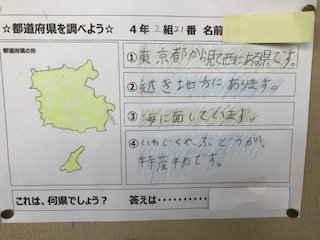 ☆都道府県を調べよう☆ 4年 2組 21番 名前
都道府県の形
①東京都から見て西にある県です。
②近き地方にあります。
③海に面しています。
④いちじくや、ぶどうが、
特産物です。
これは、何県でしょう？ 答えは‥‥‥‥‥